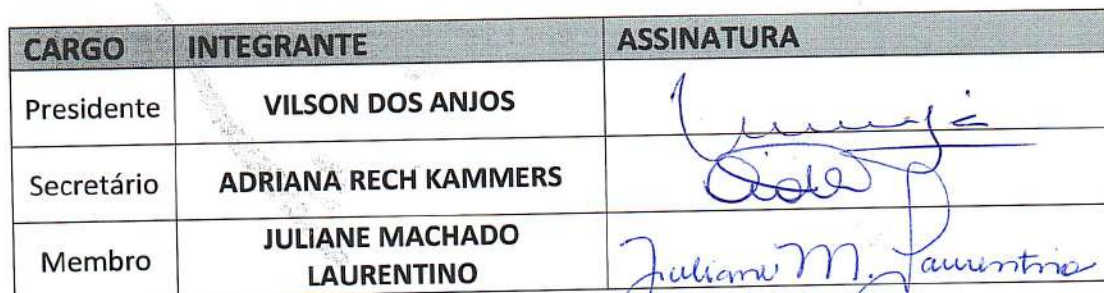 CARGO INTEGRANTE ASSINATURA
Presidente VILSON DOS ANJOS
Secretário ADRIANA RECH KAMMERS
Membro JULIANE MACHADO LAURENTINO Juliane M. Laurentino